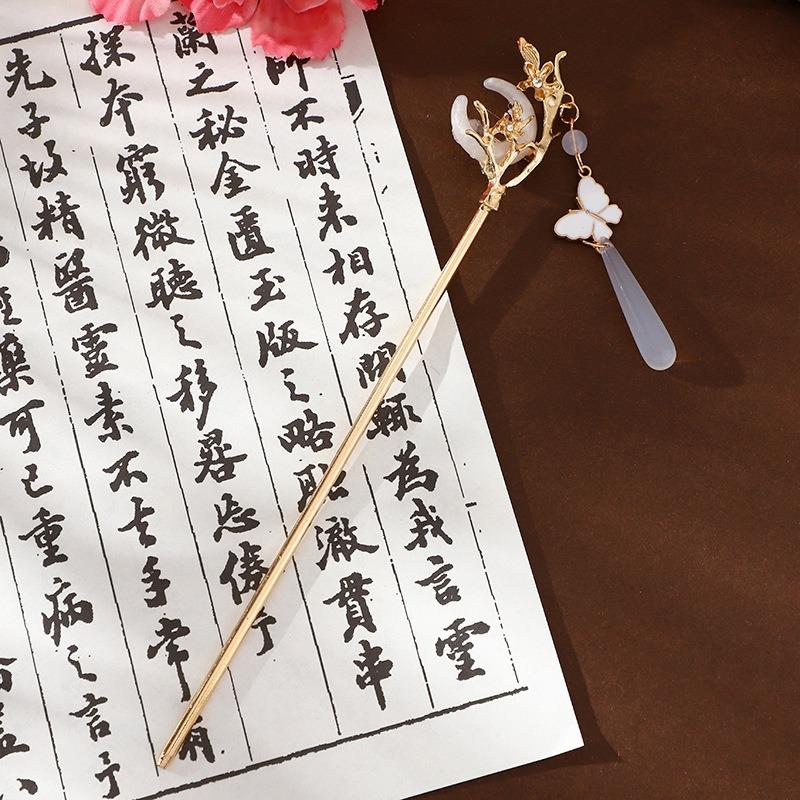 師不時来相存問輒為我言靈
蘭之秘金匱玉版之略澈貫串
探本窮微聽之移晷忘倦予
先子故精醫靈素不去手常
藥可已重病之言予